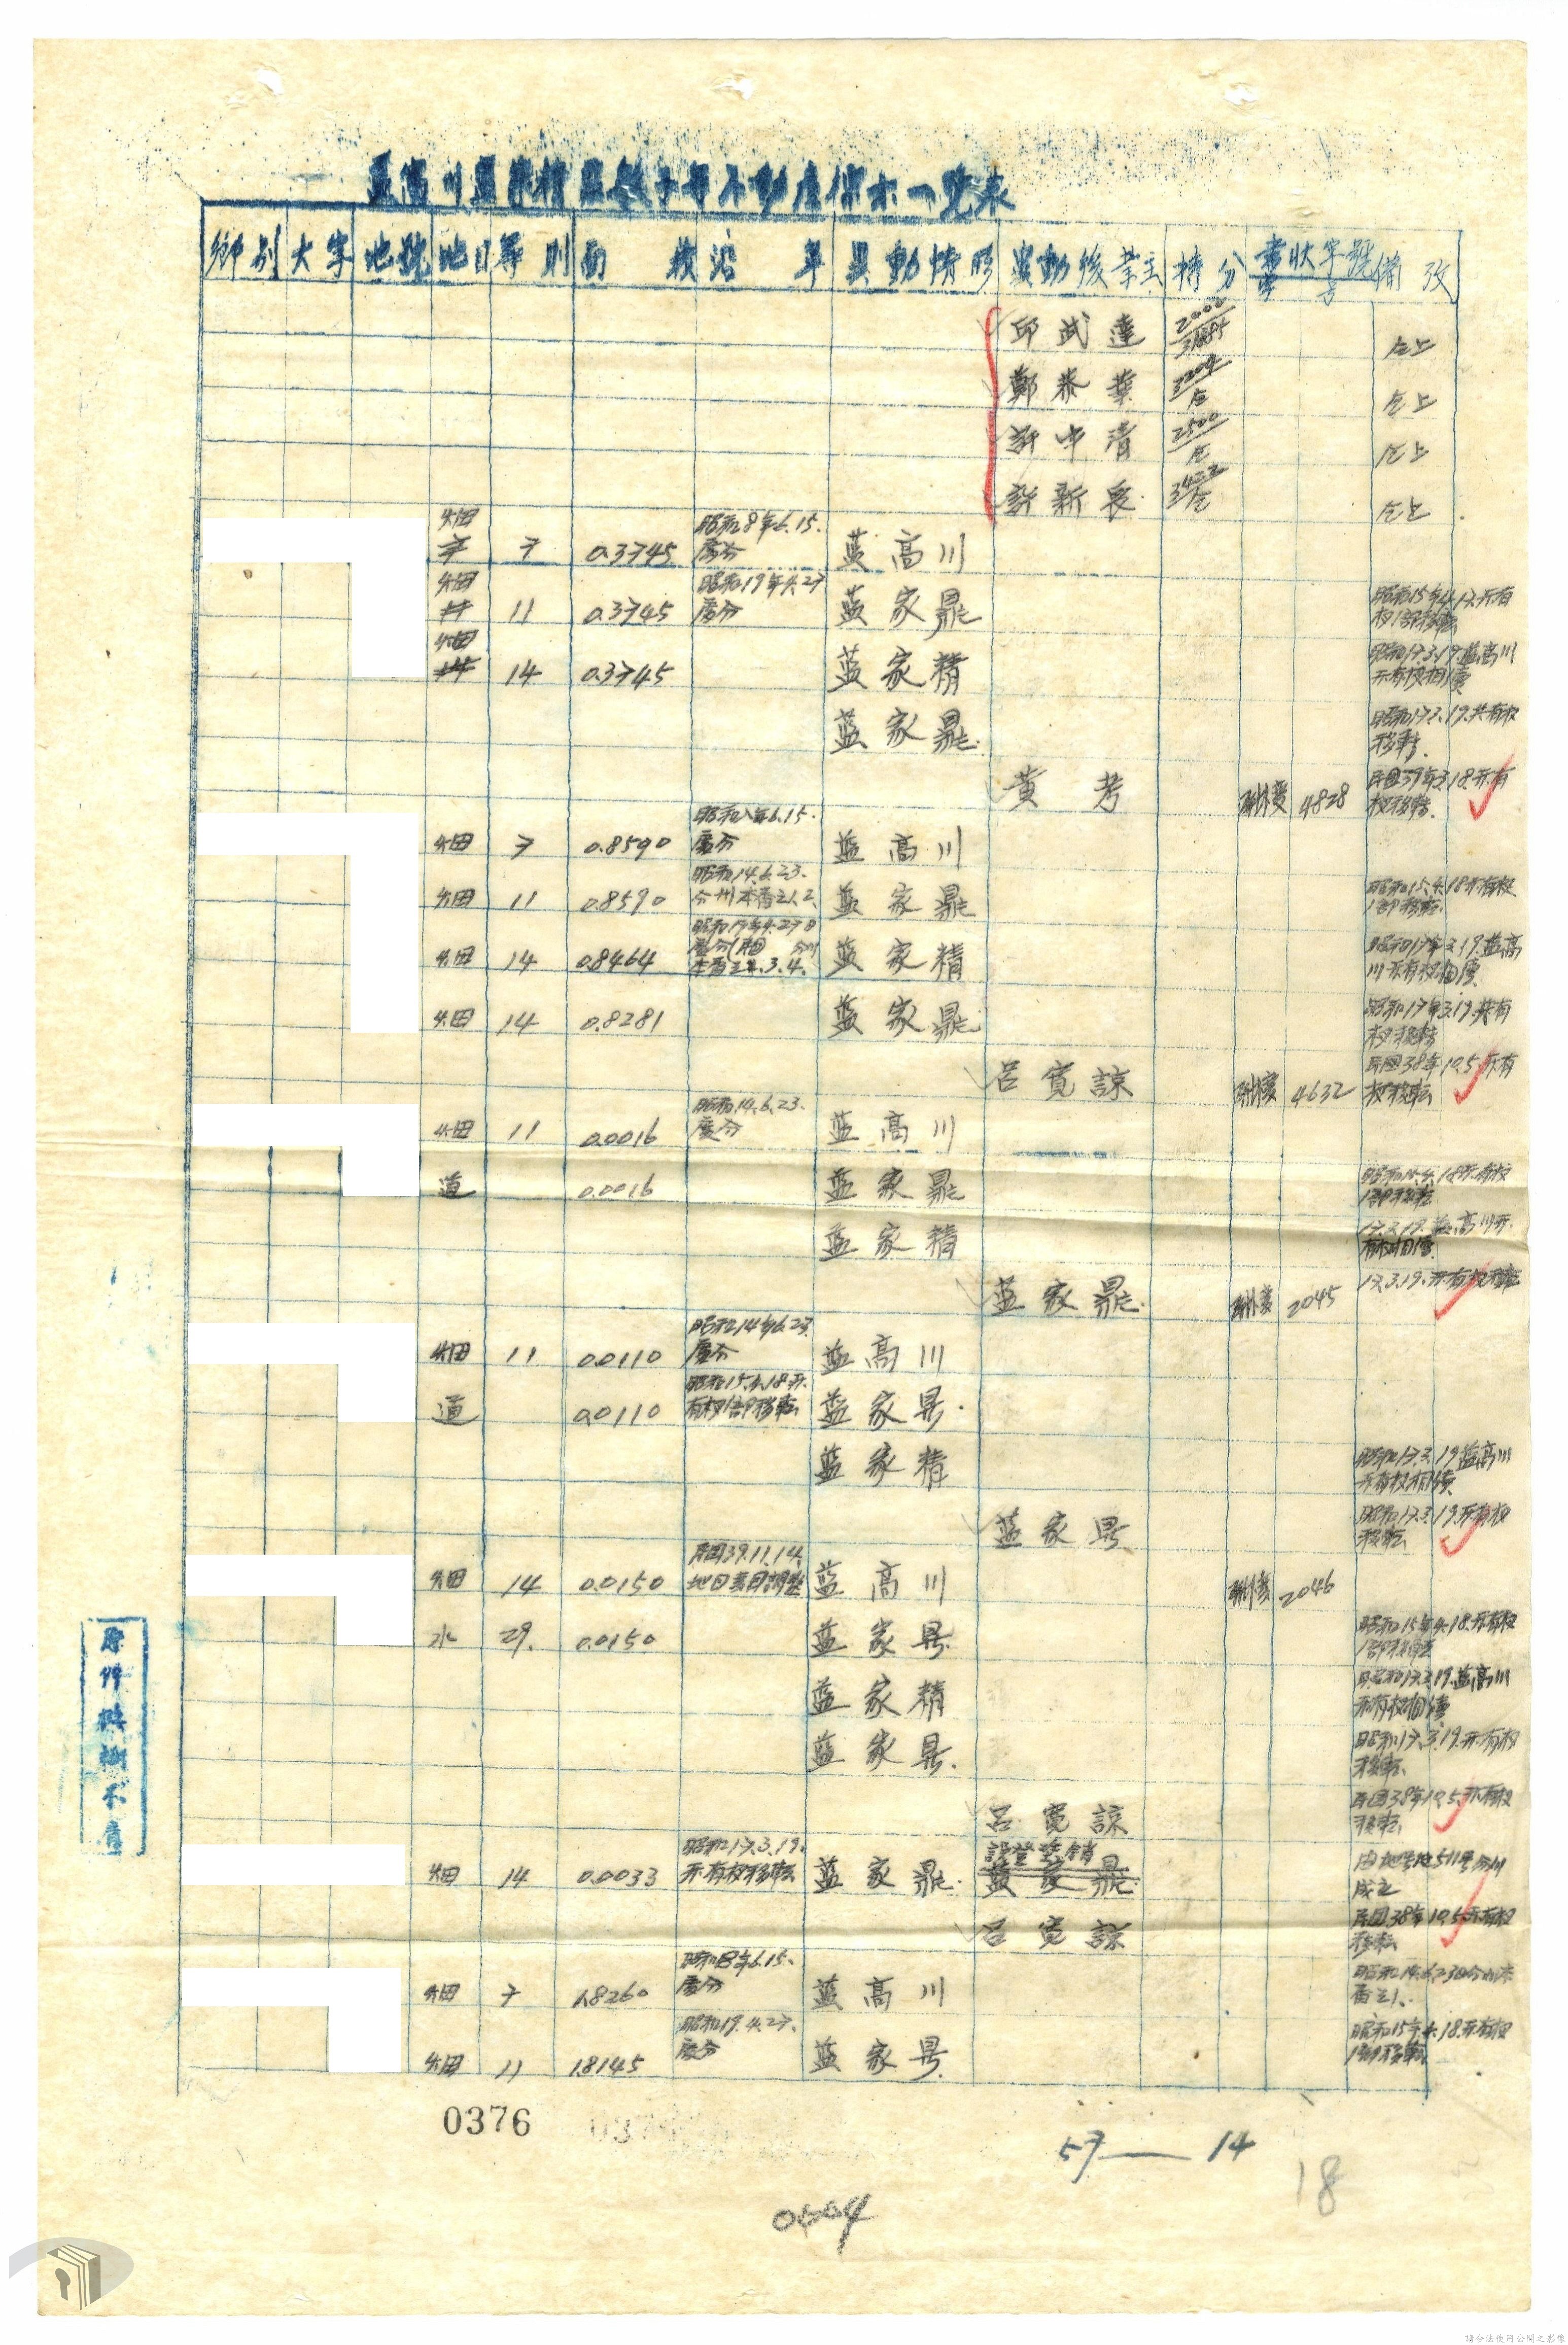 藍高川藍家精藍家鼎等不動產標示一覽表
鄉別 大字 地號 地目 等則 面積 沿革 異動情形 異動後業主 持分 書狀字號 備攷
邱武達 2000/31885 仝上
鄭恭華 3204/仝 仝上
許中清 2500/仝 仝上
許新良 仝上
昭和8年6.15.
畑 7 0.3745 處分 藍高川
昭和19年4.27
畑 11 0.3745 處分 藍家鼎 昭和15年4.17.所有
权1部移転
畑 14 0.3745 藍家精 昭和17.3.19.藍高川
所有权相續
藍家鼎 昭和17.3.19.共有权
移転.
黃考 4828 民國39年3.18.所有
权移転.
昭和8年6.15.
畑 7 0.8590 處分 藍高川
昭和14.6.23.
畑 11 0.8590 分割本番之1.2. 藍家鼎 昭和15.4.18所有权
1部移転.
昭和19年4.27日
畑 14 0.8464 本番之3.4. 藍家精 昭和17年3.19.藍高
川所有权相續.
畑 14 0.8281 藍家鼎 昭和17年3.19.共有
权移転
呂寬諒 4632 民國38年10.5所有
权移転
昭和14.6.23.
畑 11 0.0016 處分 藍高川
道 0.0016 藍家鼎 昭和15.4.18所有权
1部移転
藍家精 17.3.19.藍高川所
有权相續.
藍家鼎. 2045 17.3.19.所有权移転
昭和14年6.23.
畑 11 0.0110 處分 藍高川
昭和15.4.18.所
道 0.0110 有权1部移転 藍家鼎.
藍家精 昭和17.3.19藍高川
所有权相續
藍家鼎 昭和17.3.19所有权
移転
民國39.11.14.
畑 14 0.0150 地目等則調整 藍高川 2046
水 29. 0.0150 藍家鼎. 昭和15年4.18.所有权
1部移転
藍家精 昭和17.3.19.藍高川
所有权相續
藍家鼎. 昭和17.3.19.所有权
移転
呂寬諒 民國38年10.5.所有权
移転
昭和17.3.19. 誤登塗銷
畑 14 0.0033 所有权移転 藍家鼎. 藍家鼎. 由地号511号分割
成立
呂寬諒 民國38年10.5所有权
移転
昭和8年6.15.
畑 7 1.8260 處分 藍高川 昭和14.6.23日分割本
番之1.
昭和19.4.27.
畑 11 1.8145 處分 藍家鼎. 昭和15年4.18.所有权
1部移転
原件模糊不清
0376
57——14
18
0004
請合法使用公開之影像